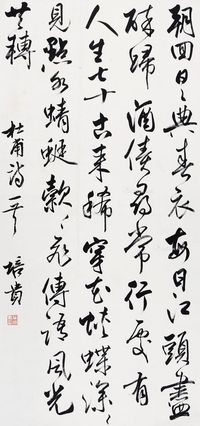 朝回日々典春衣每日江頭盡
醉歸酒債尋常行處有
人生七十古來稀穿花蛺蝶深々
見點水蜻蜓款々飛傳語風光
共轉
杜甫詩一首
培貴